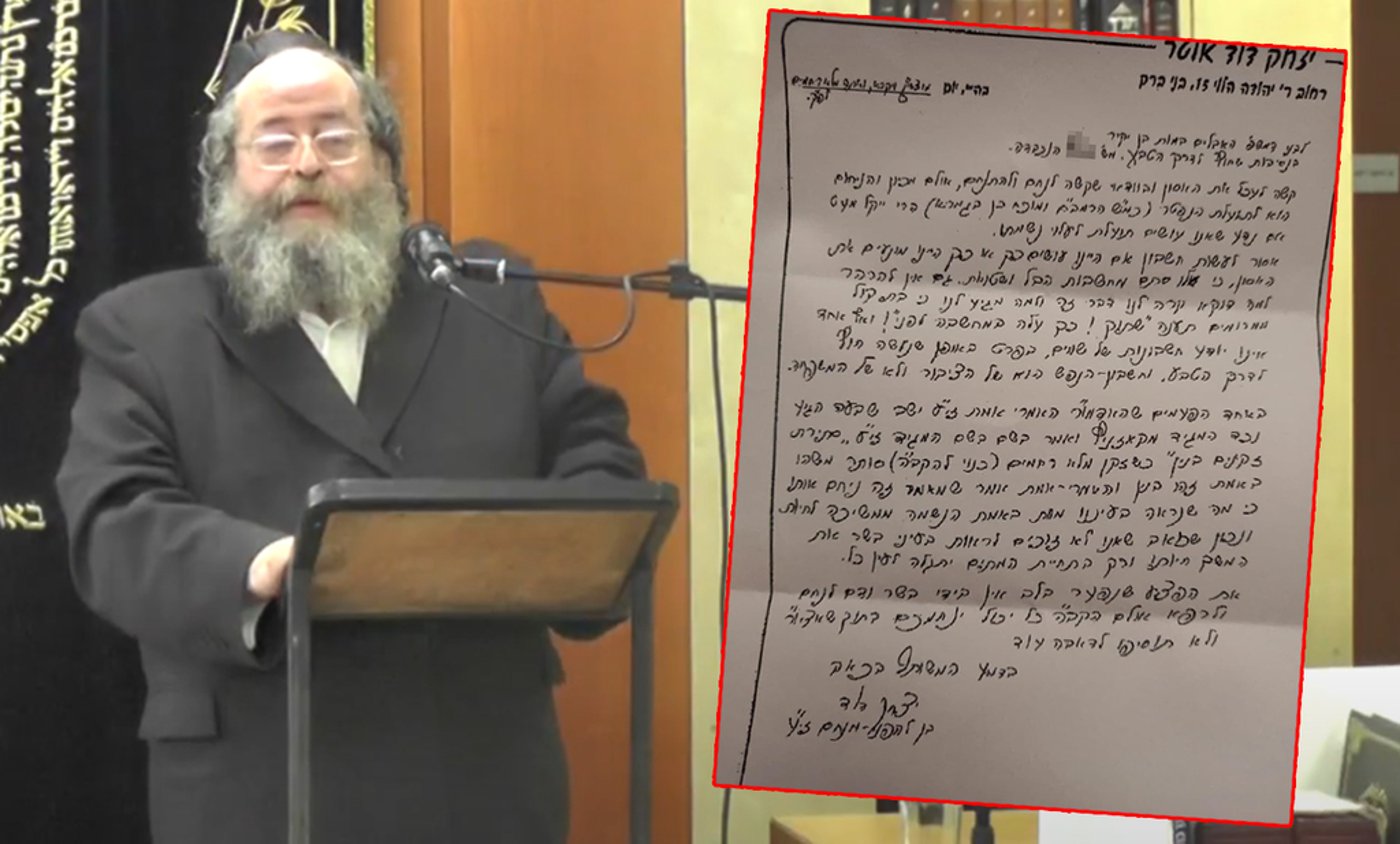 יצחק דוד אוטר
רחוב ר' יהודה הלוי 15, בני ברק
בהיי, יום
לבני המשפ' האבלים במות בן יקיר
בנסיבות שחוץ לדרך הטבע, מש' הנכבדה.
קשה לעכל את האסון ובוודאי שקשה לנחם ולהתנחם, אולם מכיון והניחום
הוא לתועלת הנפטר (כמ"ש הרמב"ם ומוכח כן בגמרא) הרי ייקל מעט
אם נדע שאנו עושים תועלת לעלוי נשמתו.
אסור לעשות חשבון אם היינו עושים כך או כך היינו מונעים את
האסון, כי אלו סתם מחשבות הבל ושטויות. גם אין להרהר
למה דוקא קרה לנו דבר זה ולמה מגיע לנו כי בת קול
ממרומים תענה "שתוק! כך עלה במחשבה לפני"! ואף אחד
אינו יודע חשבונות של שמים, בפרט באופן שנעשה חוץ
לדרך הטבע, וחשבון-הנפש הוא של הציבור ולא של המשפחה.
באחד הפעמים שהאדמו"ר האמרי אמת זי"ע ישב שבעה הגיע
נכד המגיד מקאזניץ ואמר בשם המגיד זי"ע "סתירת
זקנים בנין" כשזקן מלא רחמים (כנוי להקב"ה) סותר משהו
באמת זהו בנין והאמרי-אמת אמר שמאמר זה ניחם אותו
כי מה שנראה בעיננו מוות באמת הנשמה ממשיכה לחיות
שאנו לא זוכים לראות בעיני בשר את
המשך חיותו ורק בתחיית המתים יתגלה לעין כל.
את הפצע שנפער בלב אין בידי בשר ודם לנחם
ולרפא אולם הקב"ה כל יכול ינחמכם בתוך שאצי"ו
ולא תוסיפו לדאבה עוד
בדמע המשתתף בכאב
יצחק דוד
בן